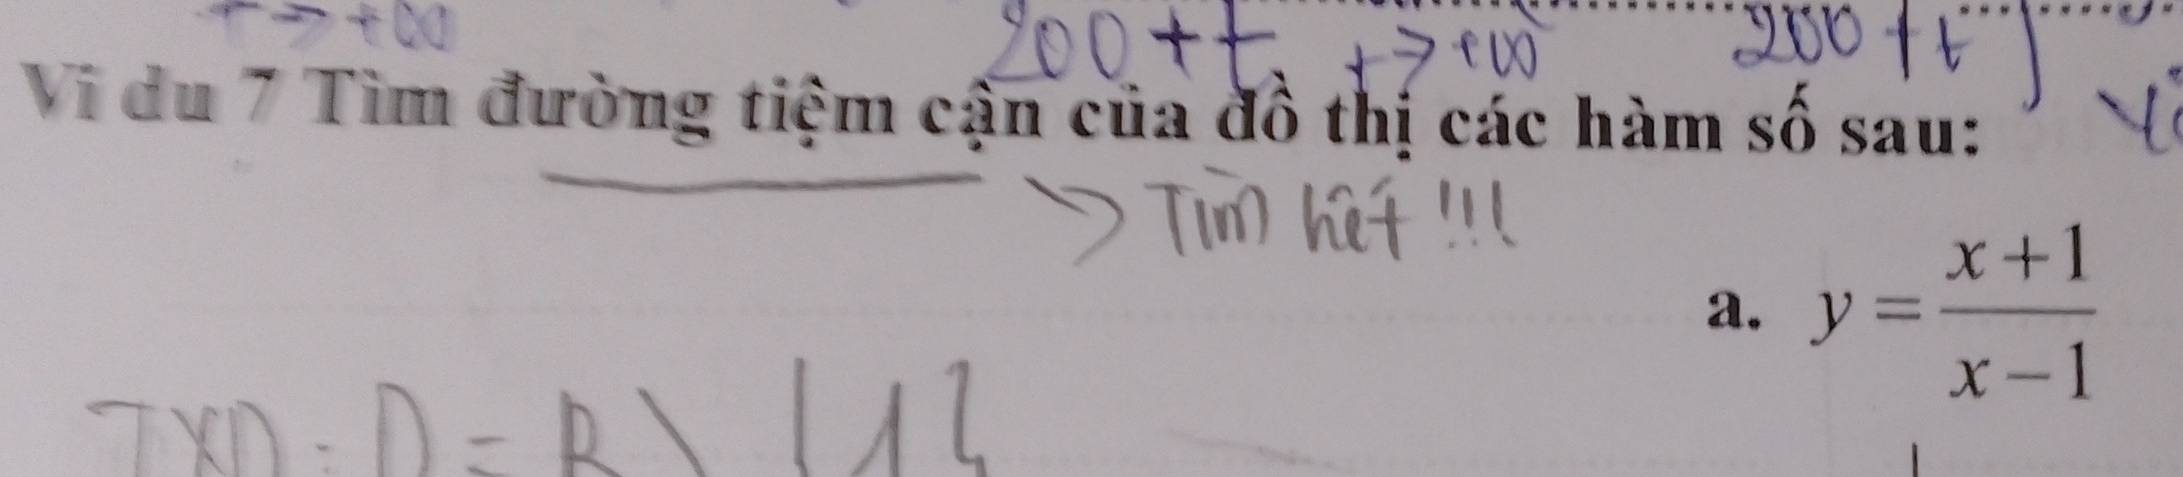 t → +∞ 200 + t t → +∞ 200 + t
Ví dụ 7 Tìm đường tiệm cận của đồ thị các hàm số sau:
→ Tìm hết !!!
a. y = \frac{x+1}{x-1}
TXD: D = R \ {1}